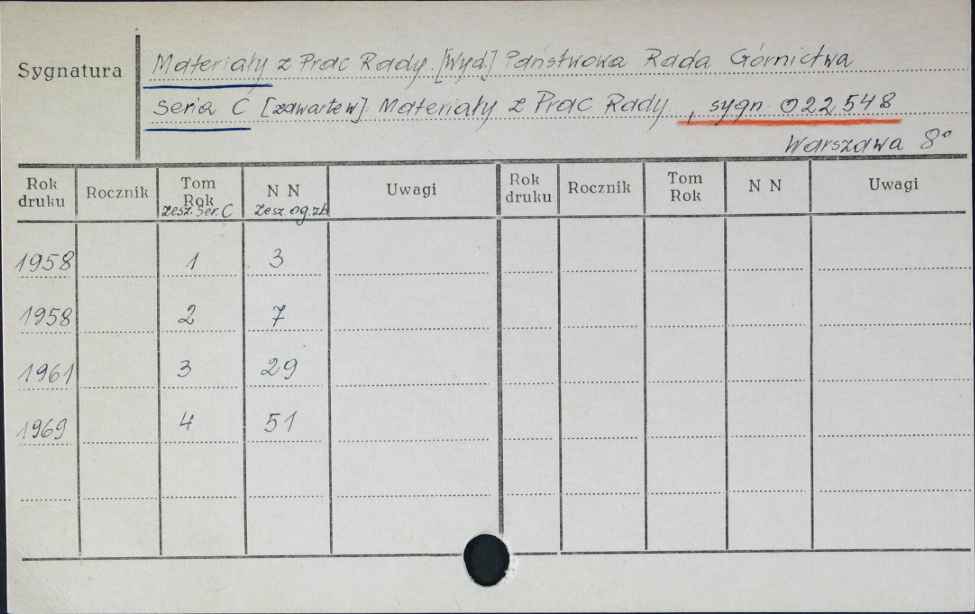 Sygnatura
Materiały z Prac Rady. [Wyd.] Państwowa Rada Górnictwa
Seria C [zawarte w] Materiały z Prac Rady, sygn. 022548
Warszawa 8°
Rok druku Rocznik Tom Rok zesz. ser. C N N zesz. og. zb Uwagi Rok druku Rocznik Tom Rok N N Uwagi
1958 1 3
1958 2 7
1961 3 29
1969 4 51